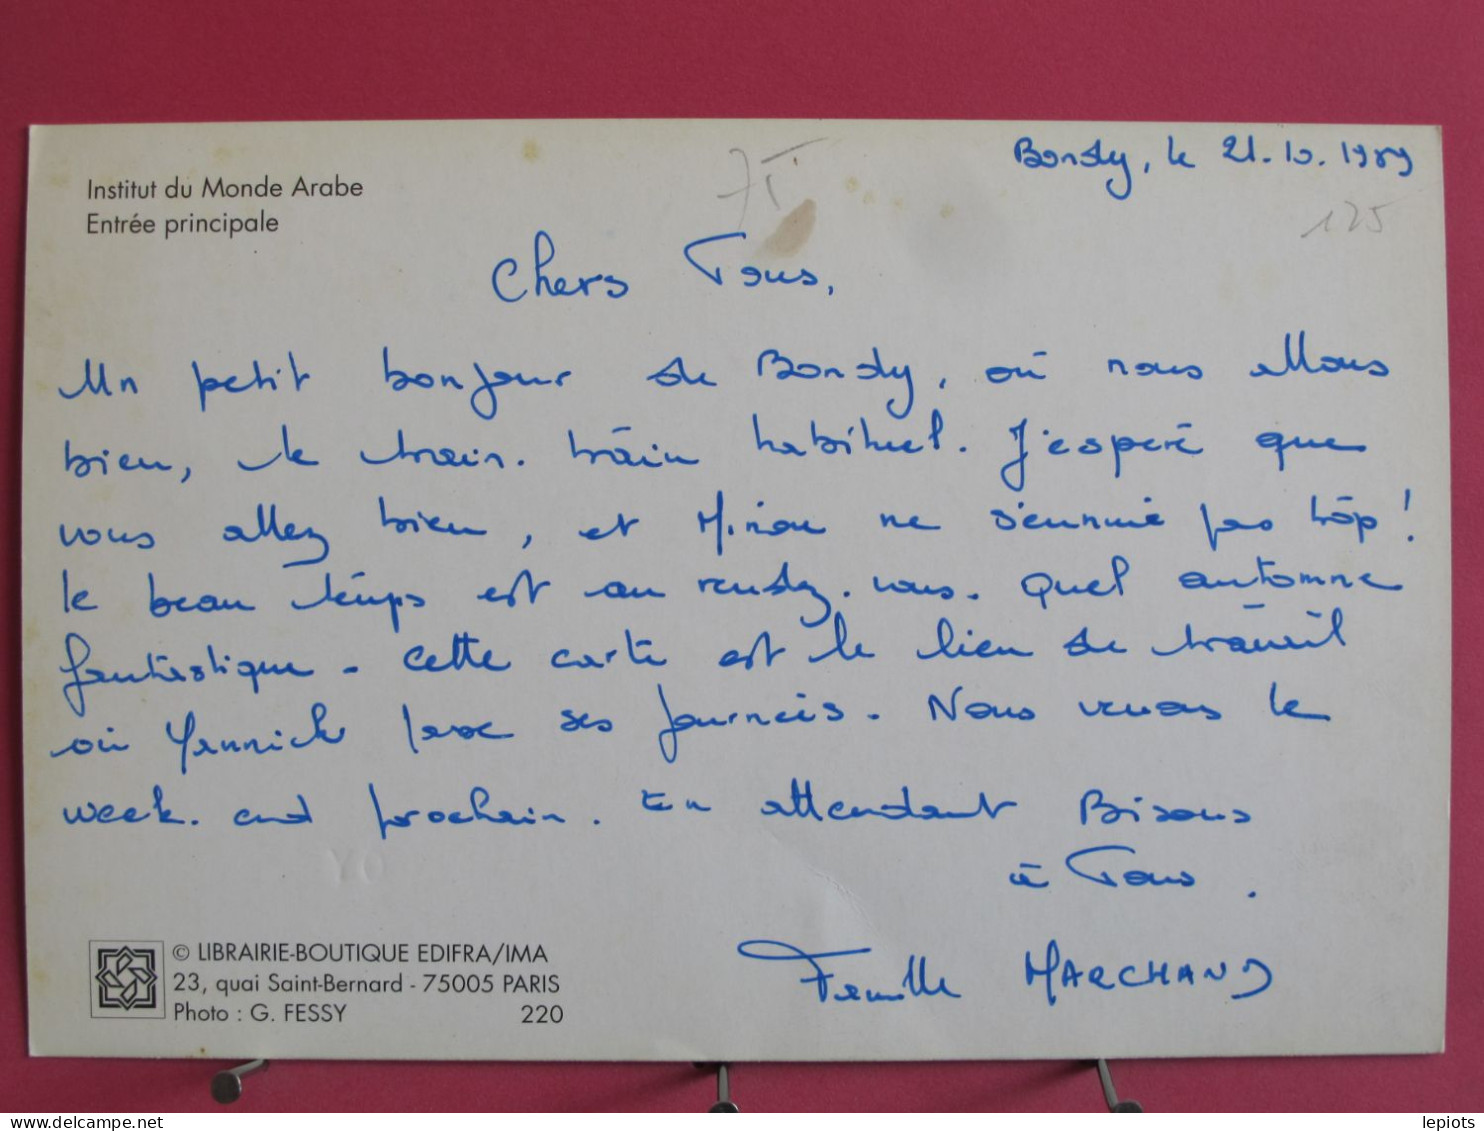 Institut du Monde Arabe
Entrée principale
Bondy, le 21.10.1989
75
125
Chers Tous,
Un petit bonjour de Bondy, où nous allons
bien, le train. train habituel. J'espère que
vous allez bien, et ne s'ennuie pas trop!
le beau temps est au rendez. vous. Quel automne
fantastique - Cette carte est le lieu de travail
où Yannick passe ses journées. Nous venons le
week. end prochain. En attendant Bisous
à Tous.
Famille MARCHAND
© LIBRAIRIE-BOUTIQUE EDIFRA/IMA
23, quai Saint-Bernard - 75005 PARIS
Photo : G. FESSY 220
www.delcampe.net
lepiots